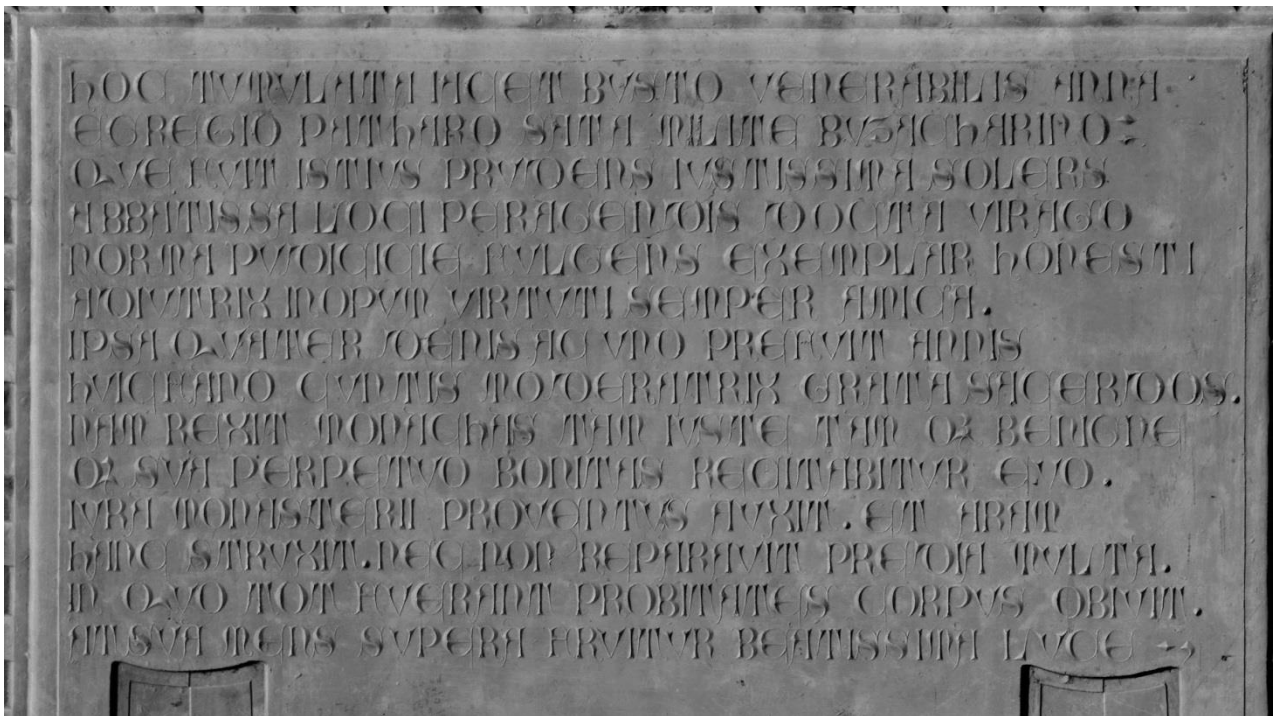 HOC TUMULATA IACET BUSTO VENERABILIS ANNA
EGREGIO PATHARO SATA MILITE BUZACHARINO:
QUE FUIT ISTIUS PRUDENS IUSTISSIMA SOLERS
ABBATISSA LOCI PERAGENDIS DOCTA VIRAGO
NORMA PUDICICIE FULGENS EXEMPLAR HONESTI
ADIUTRIX INOPUM VIRTUTI SEMPER AMICA.
IPSA QUATER DENIS AC UNO PREFUIT ANNIS
HUIC FANO CUNTIS MODERATRIX GRATA SACERDOS.
NAM REXIT MONACHAS TAM IUSTE TAM Qꝫ BENIGNE
Qꝫ SUA PERPETUO BONITAS RECITABITUR EVO.
IURA MONASTERII PROVENTUS AUXIT. ET ARAM
HANC STRUXIT. NEC NON REPARAVIT PREDIA MULTA.
IN QUO TOT FUERANT PROBITATES CORPUS OBIVIT.
AT SUA MENS SUPERA FRUITUR BEATISSIMA LUCE